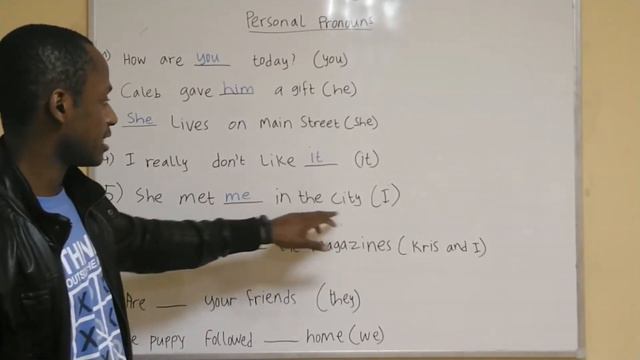 Personal Pronouns
How are you today? (you)
Caleb gave him a gift (he)
She Lives on Main Street (she)
4) I really don't like it (it)
5) She met me in the city (I)
magazines (Kris and I)
Are ___ your friends (they)
puppy followed ___ home (we)
THINK
OUTSIDE